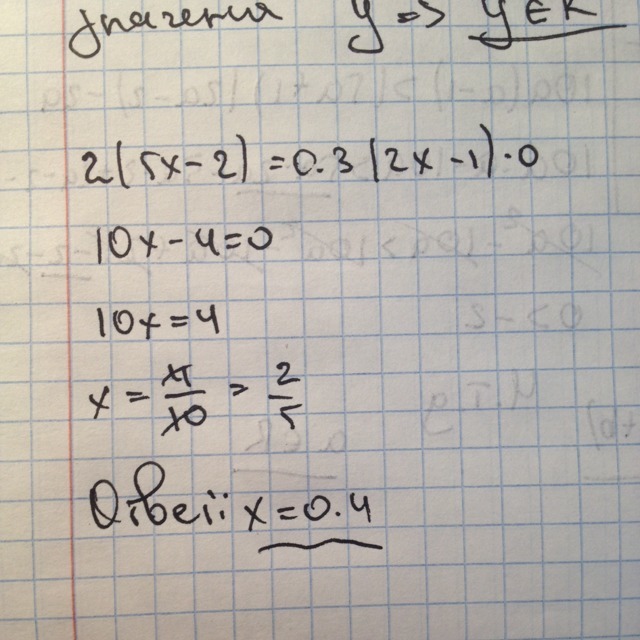 значения y => y ∈ R
2(5x-2)=0.3(2x-1)·0
10x-4=0
10x=4
x = 4/10 = 2/5
Ответ: x=0.4